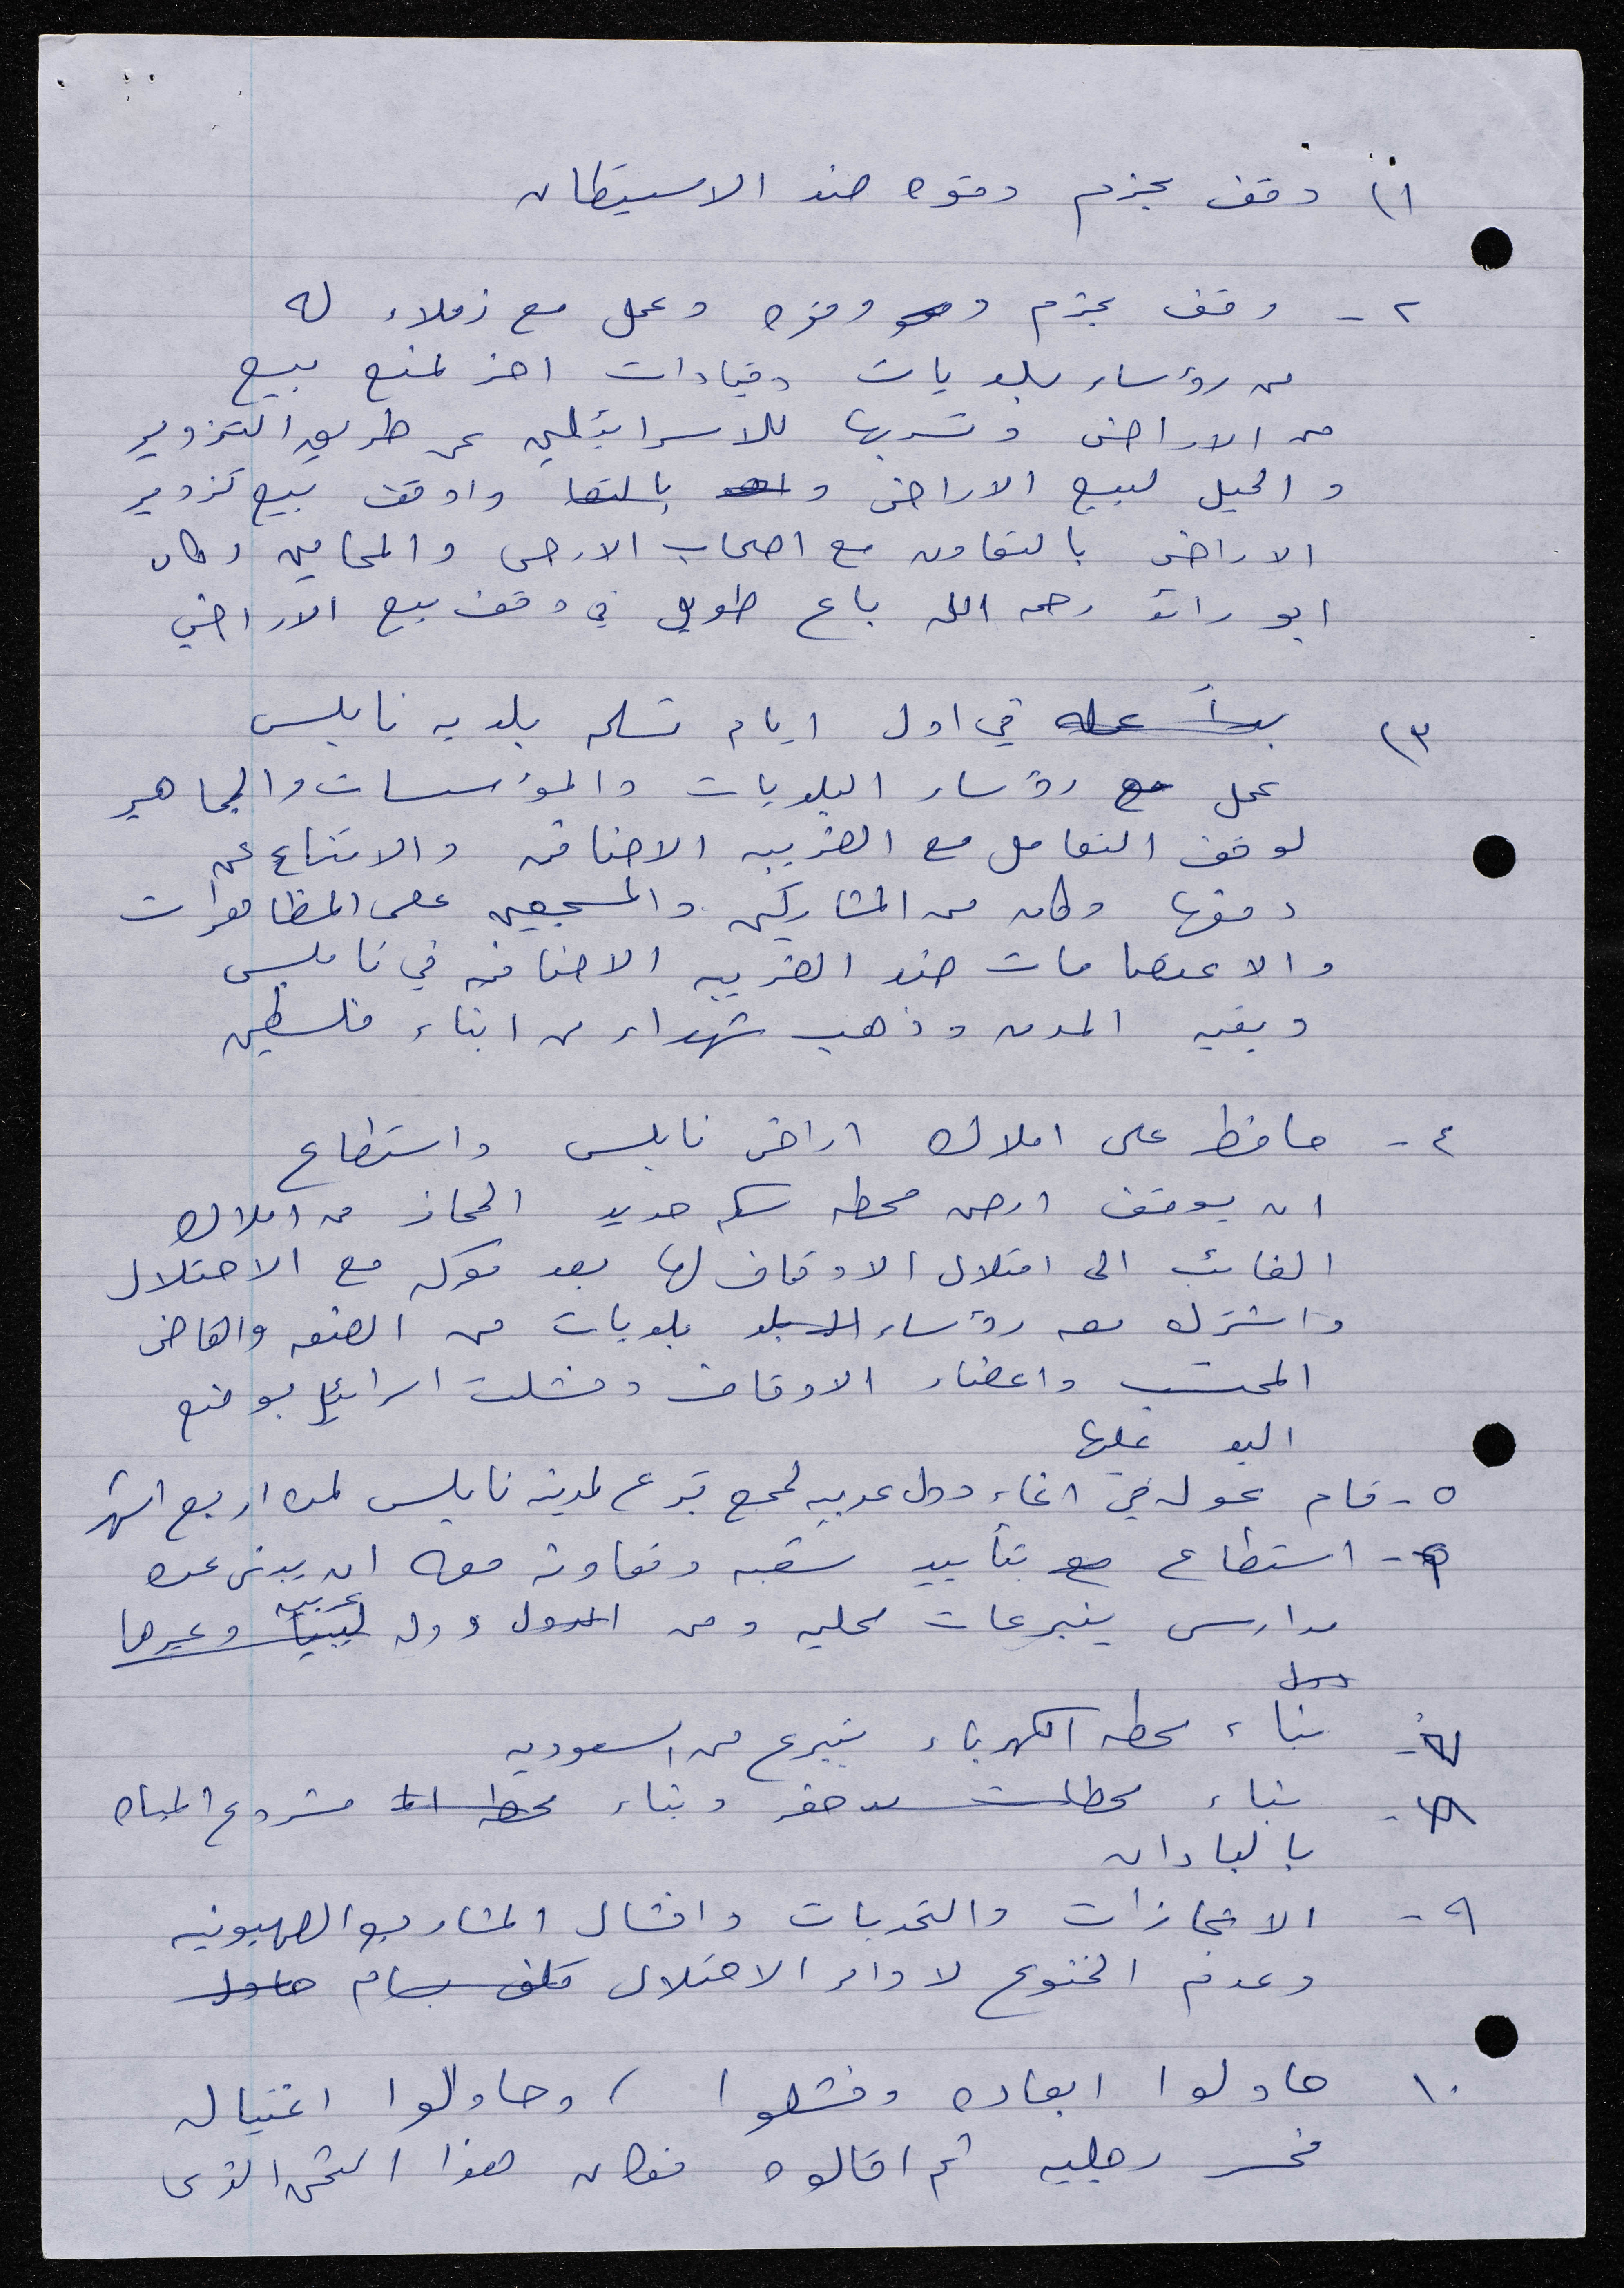 ١) وقف بحزم وقوه ضد الاستيطان
٢ - وقف بحزم وقوه وعمل مع زملاء له
من رؤساء بلديات وقيادات اخرى لمنع بيع
من الاراضي وتسربها للاسرائيليين عن طريق التزوير
والحيل لبيع الاراضي واوقف بيع تزوير
الاراضي بالتعاون مع اصحاب الارض والمحامين وكان
ابو رائد رحمه الله باع طويل في وقف بيع الاراضي
٣) بدأ عمله في اول ايام تسلمه بلديه نابلس
عمل مع رؤساء البلديات والمؤسسات والجماهير
لوقف التعامل مع الضريبه الاضافه والامتناع عن
دفعها وكان من المشاركين والمشجعين على المظاهرات
والاعتصامات ضد الضريبه الاضافه في نابلس
وبقيه المدن وذهب شهداء من ابناء فلسطين
٤ - حافظ على املاك اراضي نابلس واستطاع
ان يوقف ارض محطه سكه حديد الحجاز من املاك
الغائب الى امتلاك الاوقاف لها بعد معركه مع الاحتلال
واشترك معه رؤساء بلديات من الضفه والقاضي
المحتسب واعضاء الاوقاف وفشلت اسرائيل بوضع
اليد عليها
٥ - قام بجوله في انحاء دول عربيه لجمع تبرع لمدينه نابلس لمده اربع اشهر
٦ - استطاع بتأييد شعبه وتعاونه معه ان يبني عده
مدارس بتبرعات محليه ومن دول عربيه وغيرها
٧ - بناء محطه الكهرباء بتبرع من السعوديه
٨ - بناء محطات حفر وبناء مشروع المياه
بالباذان
٩ - الانجازات والتحديات وافشال المشاريع الصهيونيه
وعدم الخنوع لاوامر الاحتلال كلف بسام حاول
١٠ حاولوا ابعاده وفشلوا ، وحاولوا اغتياله
فخسر رجليه ثم اقالوه فكان هذا الثمن الذي